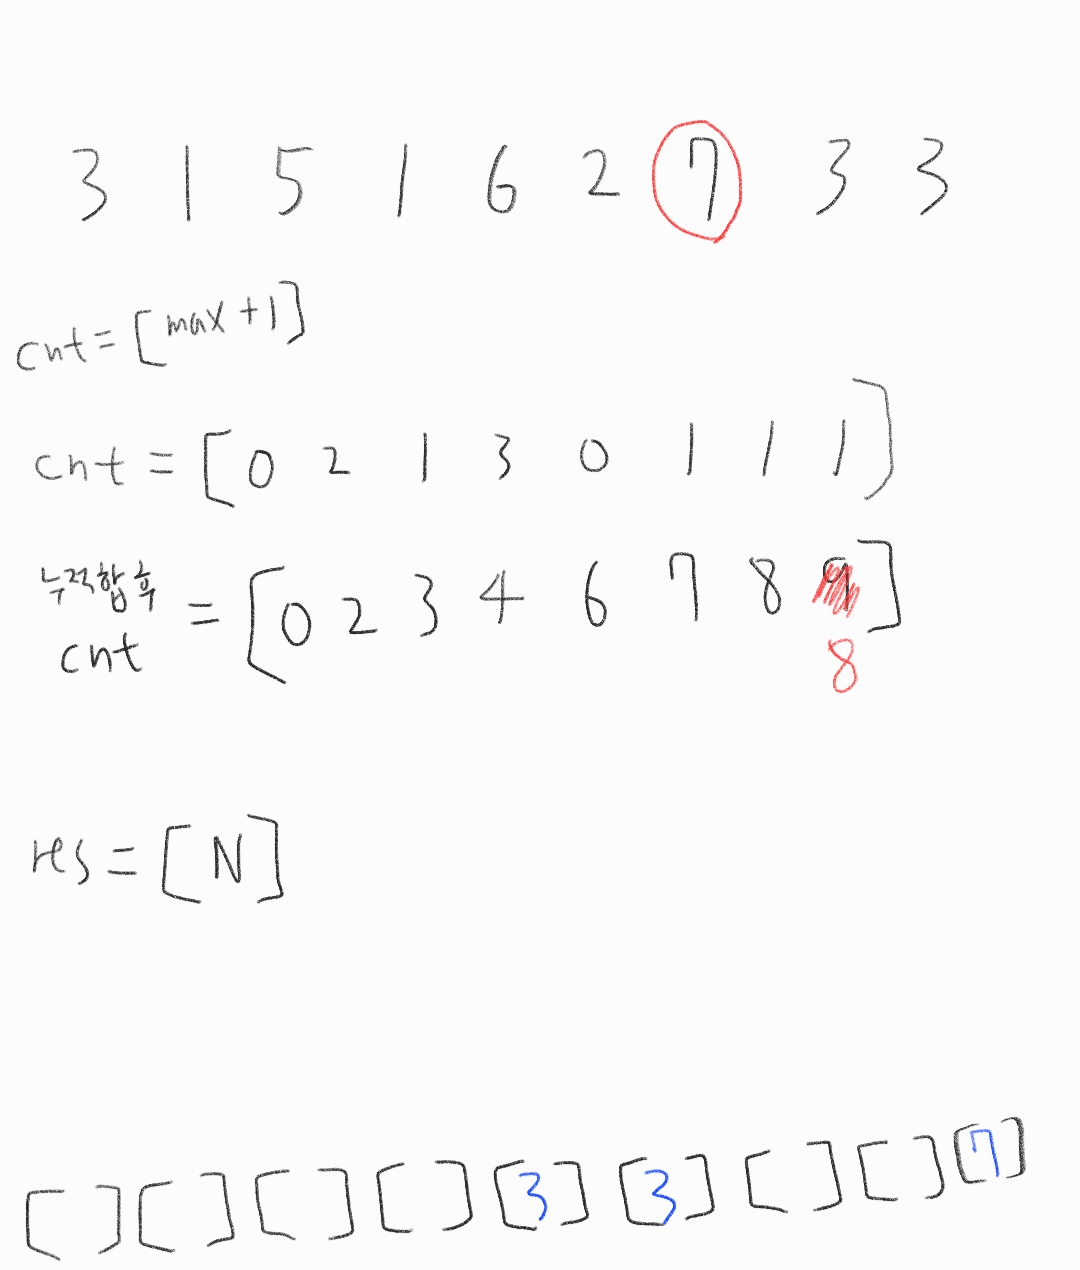 3 1 5 1 6 2 7 3 3
cnt = [max + 1]
cnt = [0 2 1 3 0 1 1 1]
누적합 후
cnt = [0 2 3 4 6 7 8 9]
8
res = [N]
[ ] [ ] [ ] [ ] [3] [3] [ ] [ ] [7]